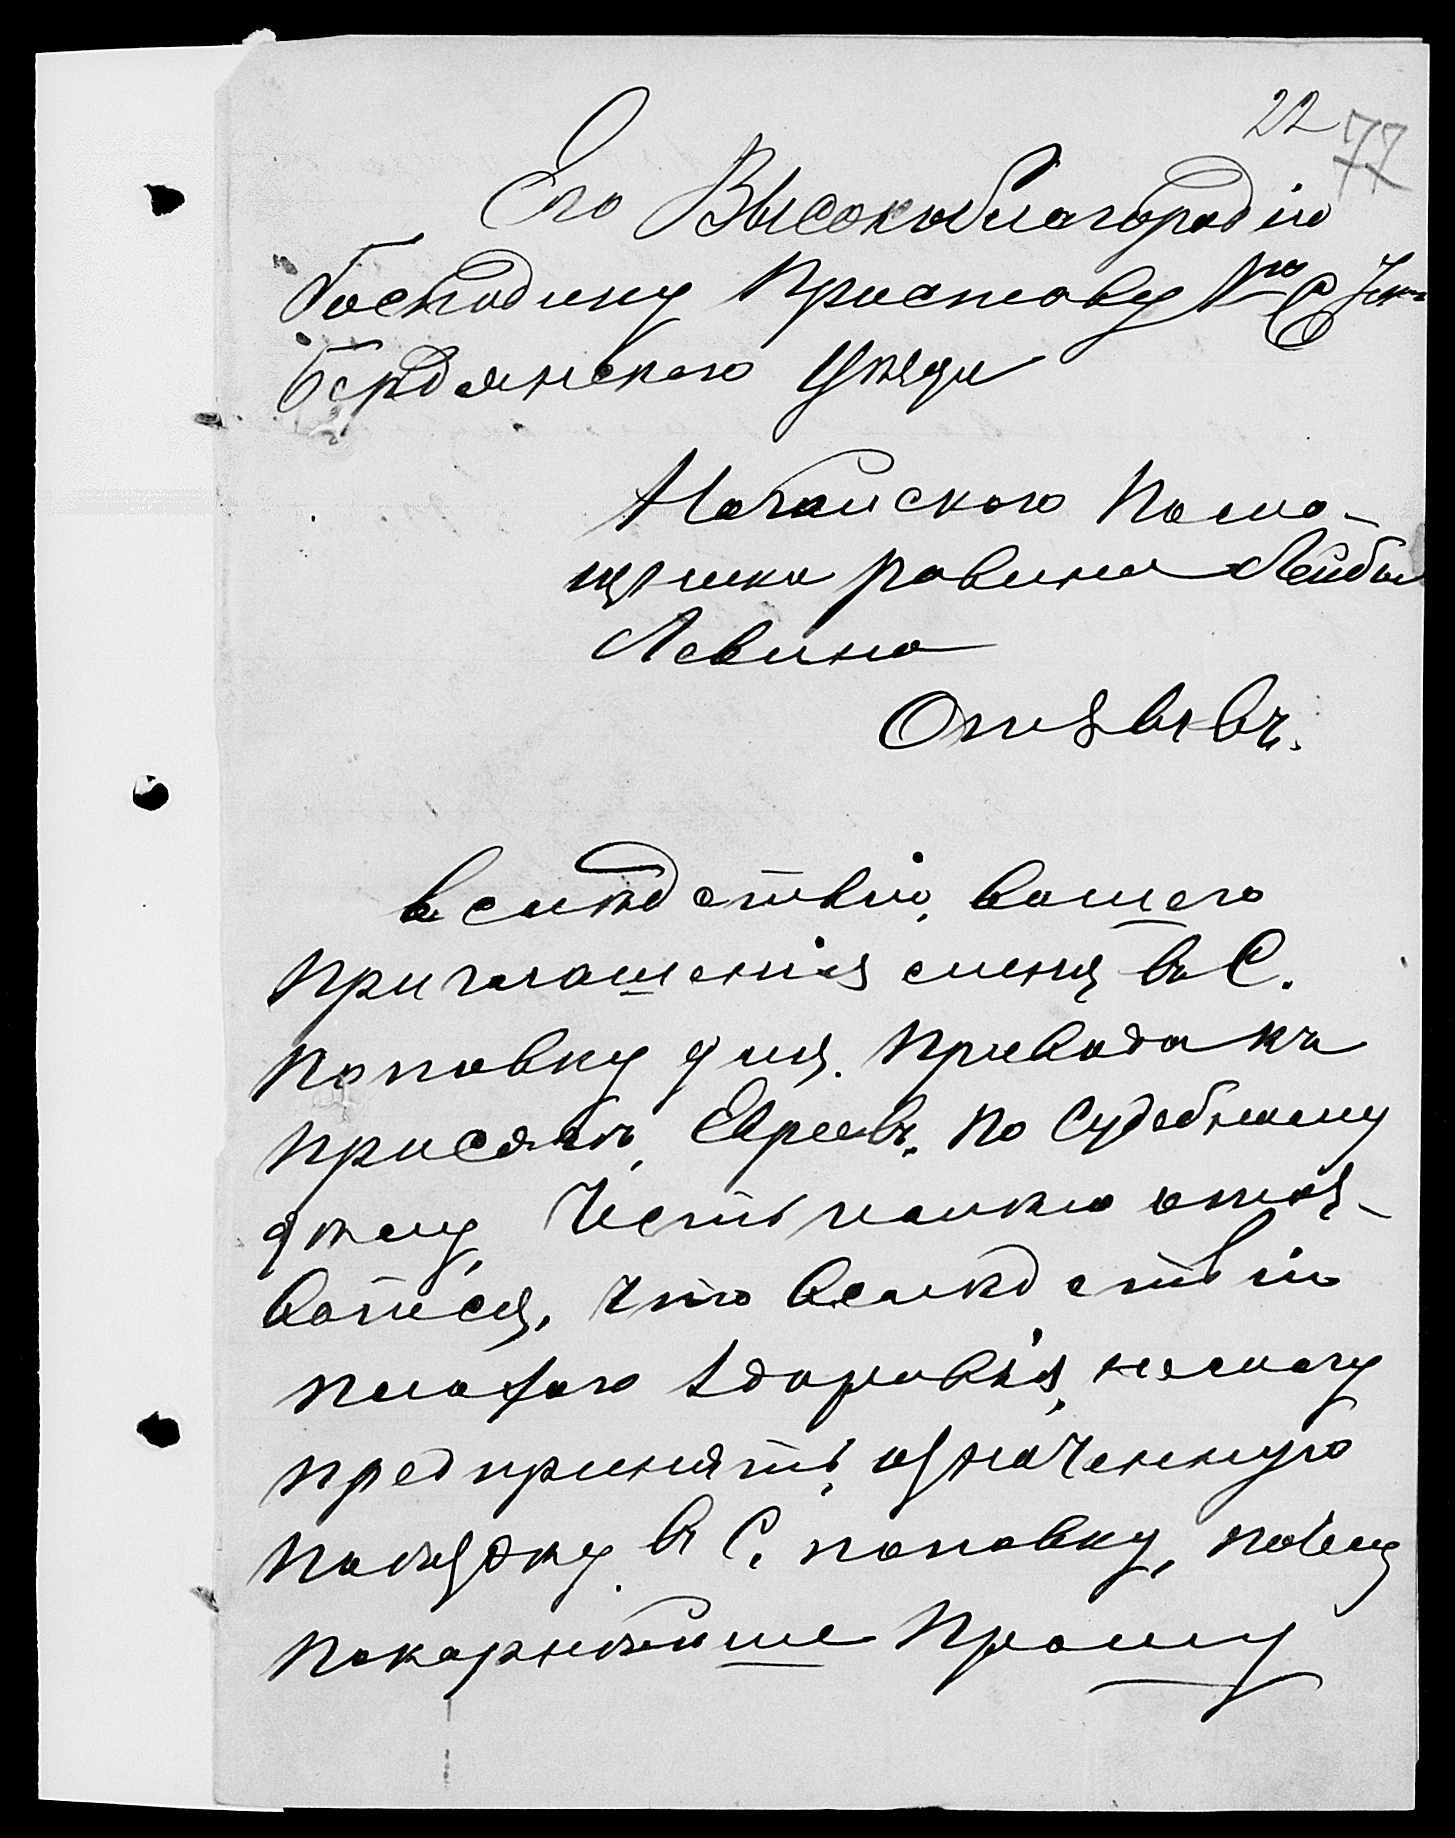 22
77
Его Высокоблагородію
Господину Приставу
Бердянского Уѣзда
Ногайского Помо-
щника равина Лейбы
Левина
Отзывъ.
вслѣдствію вашего
приглашенія мѣня въ С.
поповку для привода къ
присягѣ Евреевъ по Судебному
дѣлу, Честь имѣю отоз-
ватся, что вслѣдствію
плохого здоровія, немогу
предпринять означенную
поѣздку в С. поповку, почему
покорнѣйше прошу